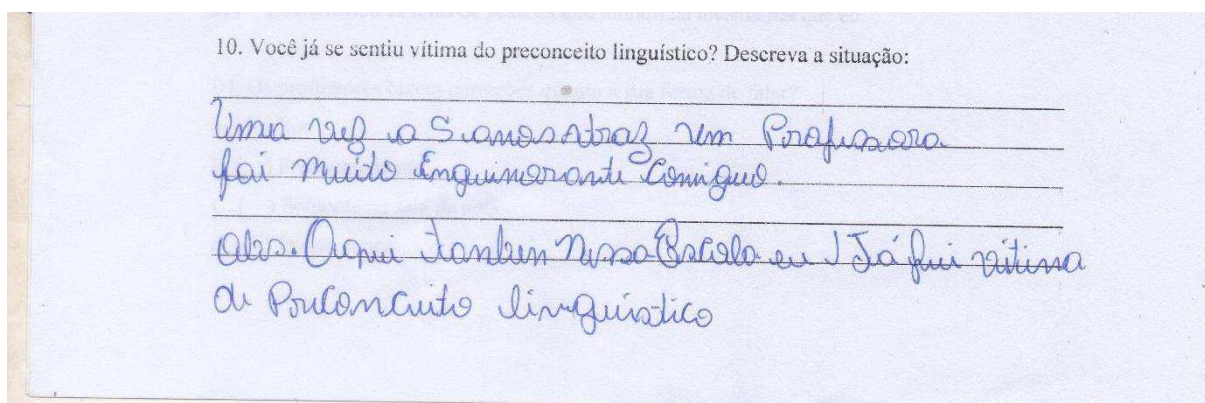 10. Você já se sentiu vítima do preconceito linguístico? Descreva a situação:
Uma vez a 5 anos Atraz um Professora
foi Muito Enguinorante Comiguo.
obs. Aqui tanben Nessa Escola eu Já fui vitima
de Preconceito linguistico